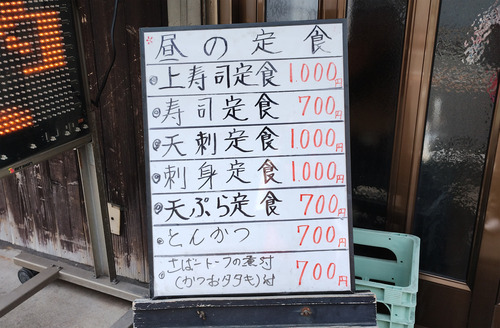 昼の定食
上寿司定食 1.000円
寿司定食 700円
天刺定食 1.000円
刺身定食 1.000円
天ぷら定食 700円
とんかつ 700円
さばとトーフの煮付
(かつおタタキ)付 700円